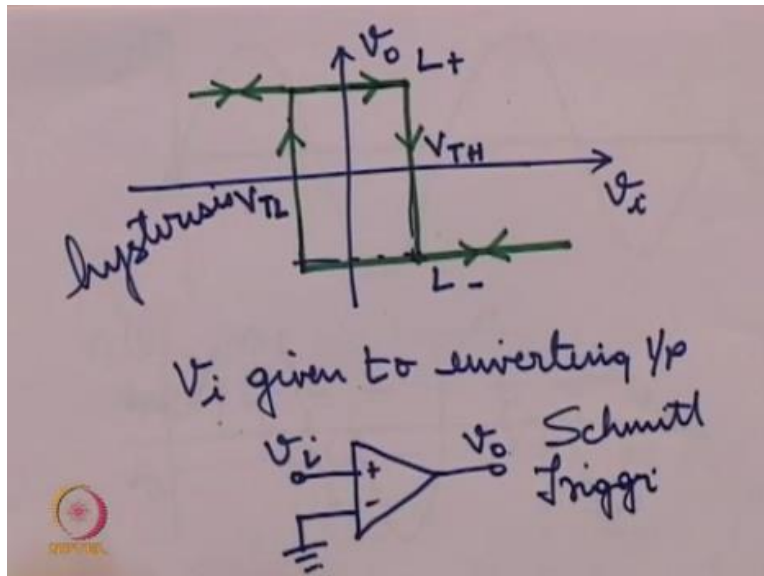 v₀ L+
V_TH
v_i
hysterisis V_TL
L -
V_i given to inverting i/p
V_i + - v₀ Schmitt
Trigger
NPTEL